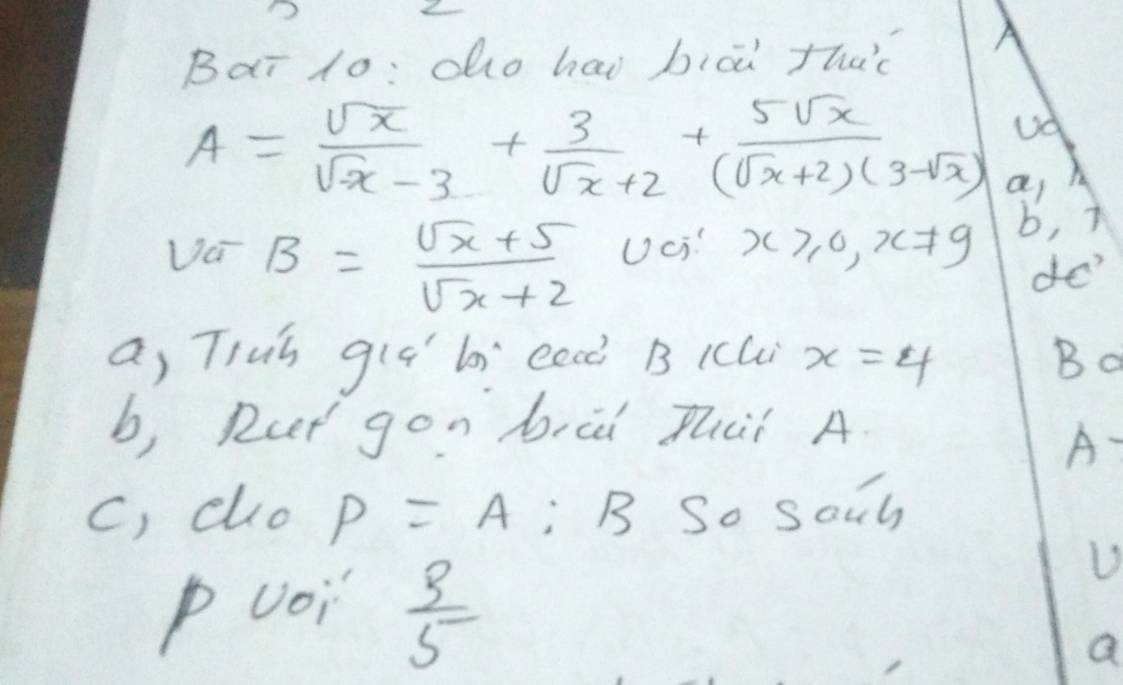 Bài 10: cho hai biểu thức
A = √x/(√x - 3) + 3/(√x + 2) + 5√x/((√x+2)(3-√x))
Và B = (√x + 5)/(√x + 2) với x ≥ 0, x ≠ 9
a, Tính giá trị của B khi x = 4
b, Rút gọn biểu thức A.
c, cho P = A : B So sánh
P với 3/5
A
và
a,
b,
để
Bà
A
V
a